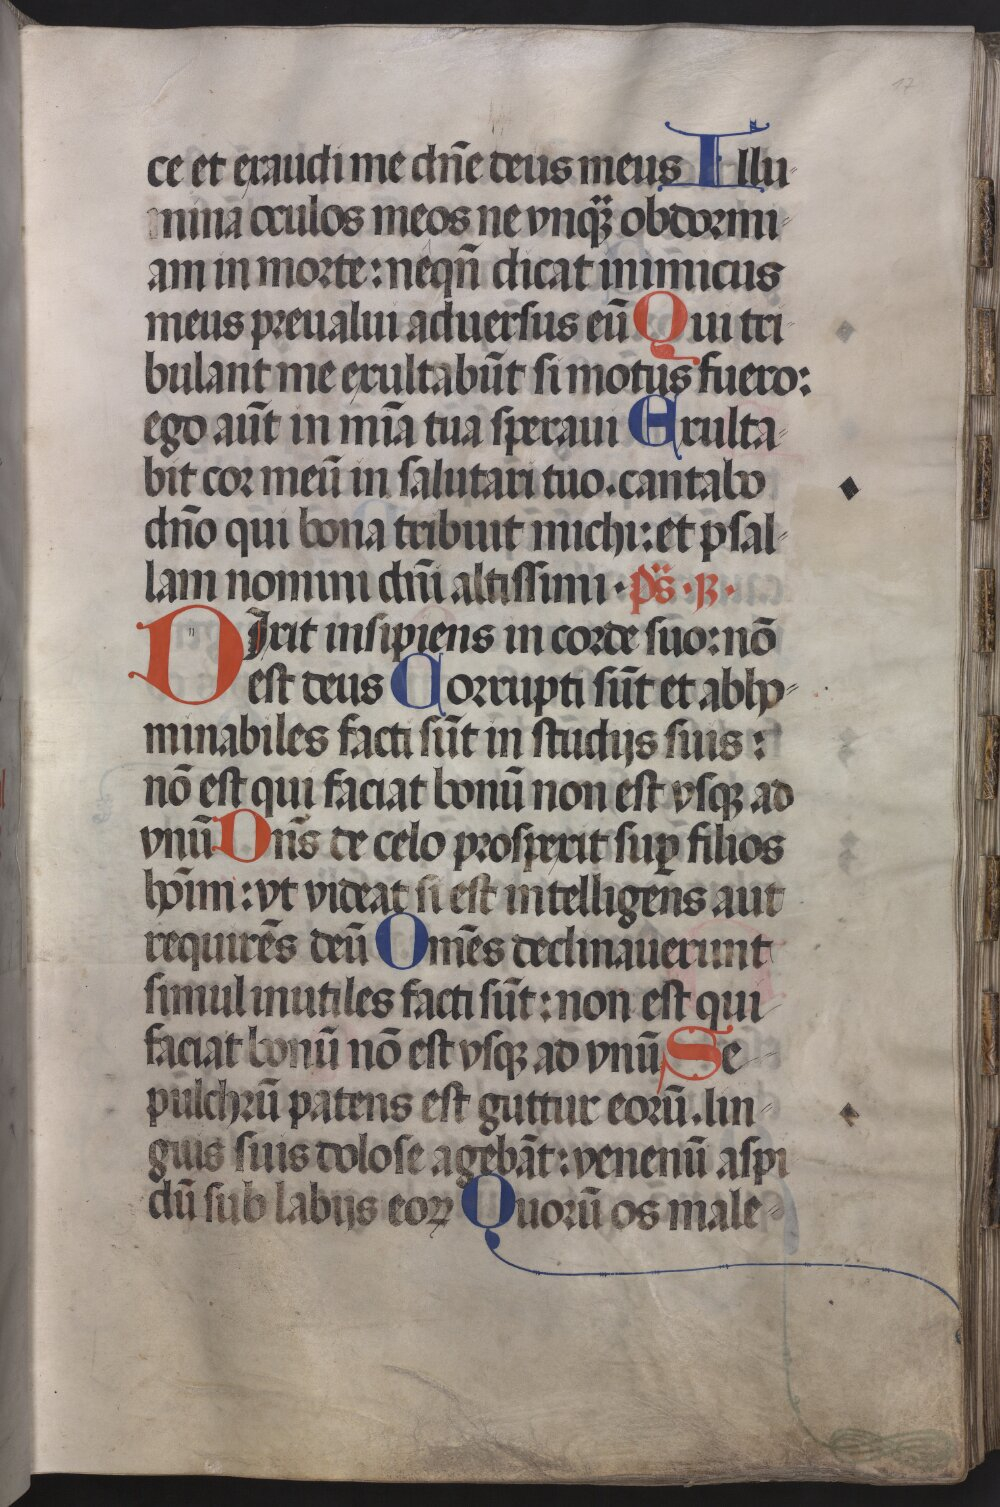 17
ce et exaudi me dn̄e deus meus Illu⸗
mina oculos meos ne vnqȝ obdormi⸗
am in morte: neqn̄ dicat inimicus
meus preualui aduersus eū Qui tri⸗
bulant me exultabūt si motus fuero:
ego aūt in mīa tua speraui Exulta⸗
bit cor meū in salutari tuo. cantabo
dn̄o qui bona tribuit michi: et psal⸗
lam nomini dn̄i altissimi · ps̄ · ꝶ ·
DIxit insipiens in corde suo: nō
est deus Corrupti sūt et abho⸗
minabiles facti sūt in studijs suis:
nō est qui faciat bonū non est vsqꝫ ad
vnū Dn̄s de celo prospexit suꝑ filios
hoīm: vt videat si est intelligens aut
requirēs deū Om̄es declinauerunt
simul inutiles facti sūt: non est qui
faciat bonū nō est vsqꝫ ad vnū Se⸗
pulchrū patens est guttur eorū. lin⸗
guis suis dolose agebāt: venenū aspi
dū sub labijs eoꝝ Quorū os male⸗